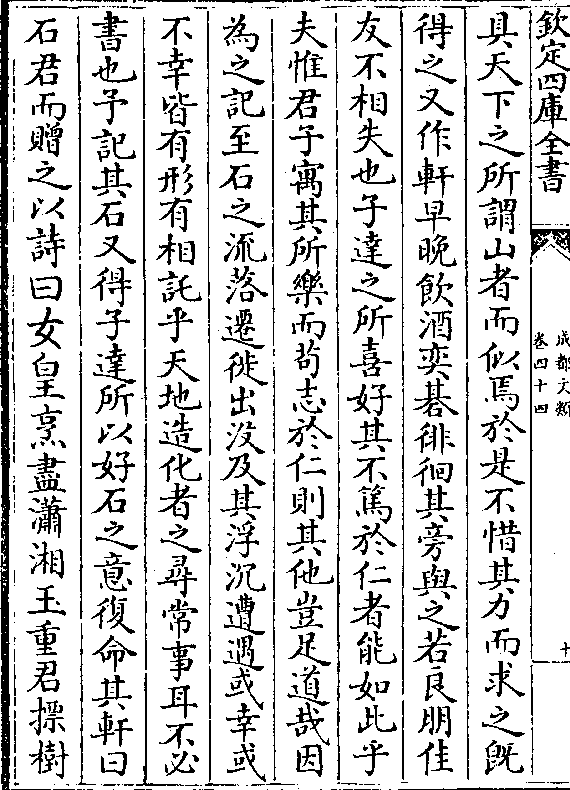 欽定四庫全書
成都文類
卷四十四
十
具天下之所謂山者而似焉於是不惜其力而求之既
得之又作軒早晚飲酒奕碁徘徊其旁與之若良朋佳
友不相失也子達之所喜好其不篤於仁者能如此乎
夫惟君子寓其所樂而苟志於仁則其他豈足道哉因
為之記至石之流落遷徙出沒及其浮沉遭遇或幸或
不幸皆有形有相託乎天地造化者之尋常事耳不必
書也予記其石又得子達所以好石之意復命其軒曰
石君而贈之以詩曰女皇烹盡瀟湘玉重君摽樹